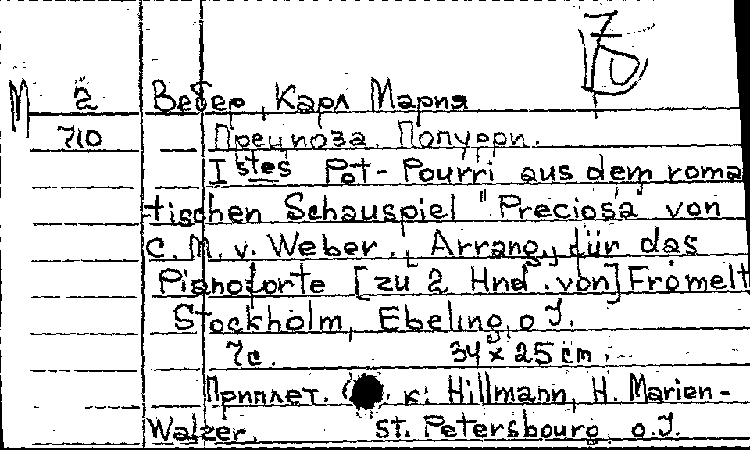 М 2 Вебер, Карл Мария
710 Прециоза. Попурри.
I stes Pot-Pourri aus dem roma
tischen Schauspiel "Preciosa" von
C. M. v. Weber. Arrang. für das
Pianoforte [zu 2 Hnd. von] Frömelt
Stockholm, Ebeling, o J.
7c. 34 x 25 cm.
Приплет. к: Hillmann, H. Marien-
Walzer. St. Petersbourg o.J.